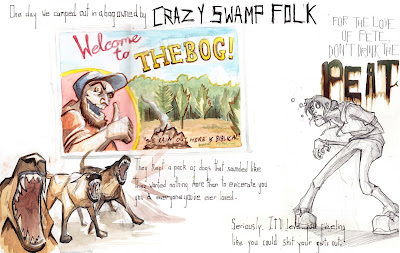 One day we camped out in a bog owned by CRAZY SWAMP FOLK
Welcome
to THE BOG!
RAIN OUT HERE IS BIBLICAL
They kept a pack of dogs that sounded like
they wanted nothing more than to eviscerate you
you & everyone you've ever loved.
FOR THE LOVE
OF PETE
DON'T DRINK THE
PEAT
Seriously. It'll leave you feeling
like you could shit your guts out.